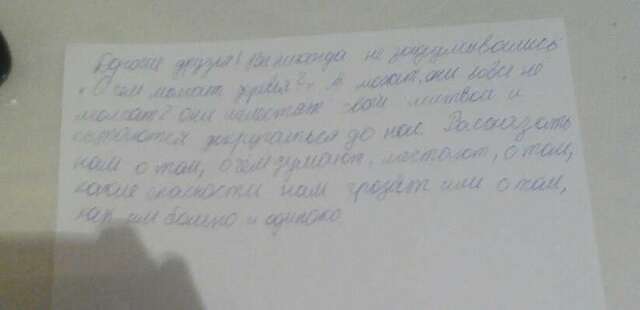 Дорогие друзья! Вы никогда не задумывались
"О чём молчат деревья?". А может, они вовсе не
молчат? Они шелестят своей листвой и
пытаются достучаться до нас. Рассказать
нам о том, о чем думают, мечтают, о том,
какие опасности нам грозят или о том,
как им больно и одиноко.